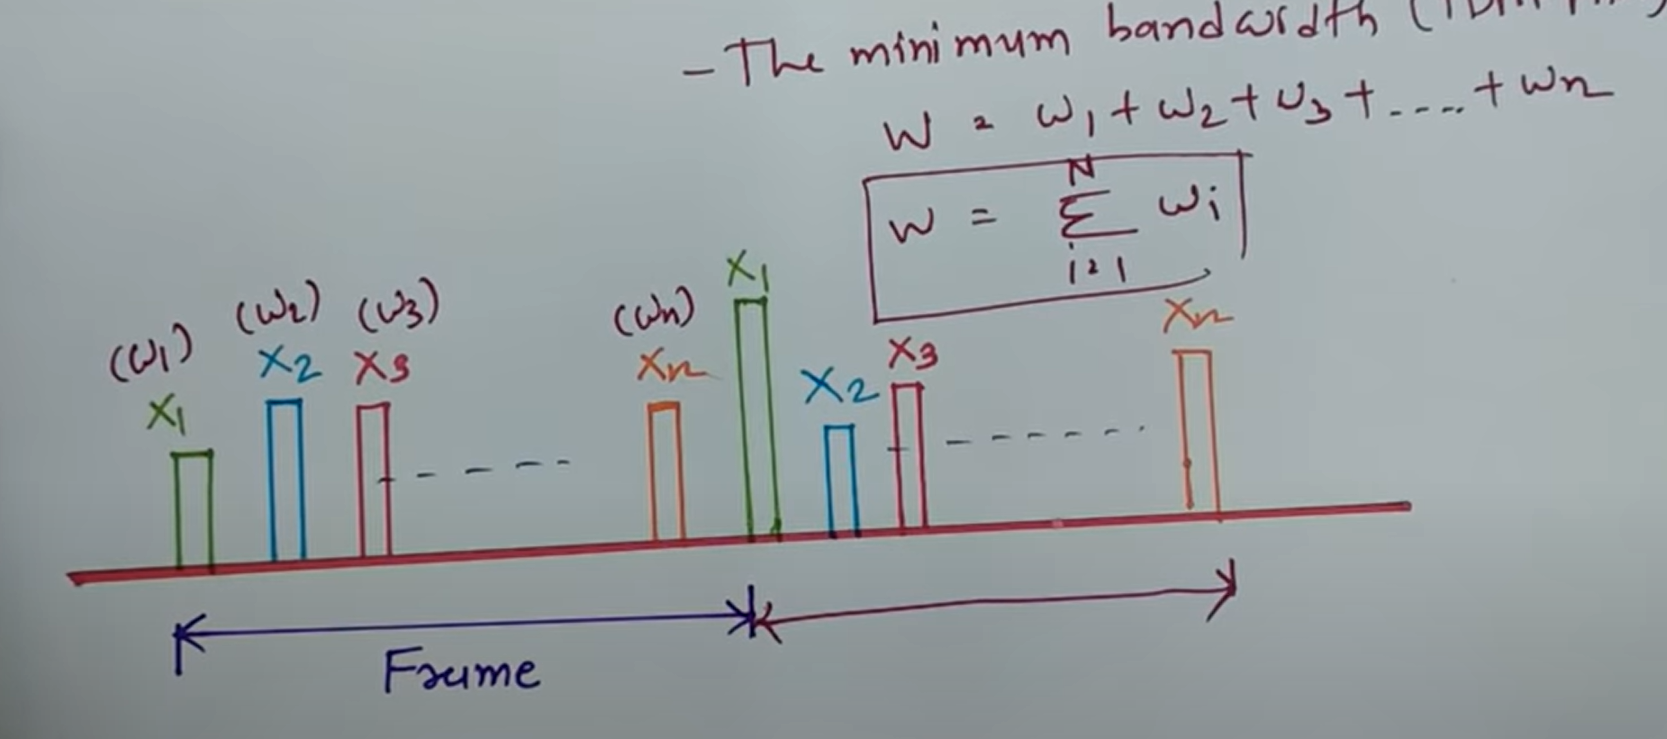 - The minimum bandwidth
W = w1 + w2 + w3 + ---- + wn
W = N Σ i=1 wi
(w1) (w2) (w3) (wn)
X1 X2 X3 Xn X1 X2 X3 Xn
Frame